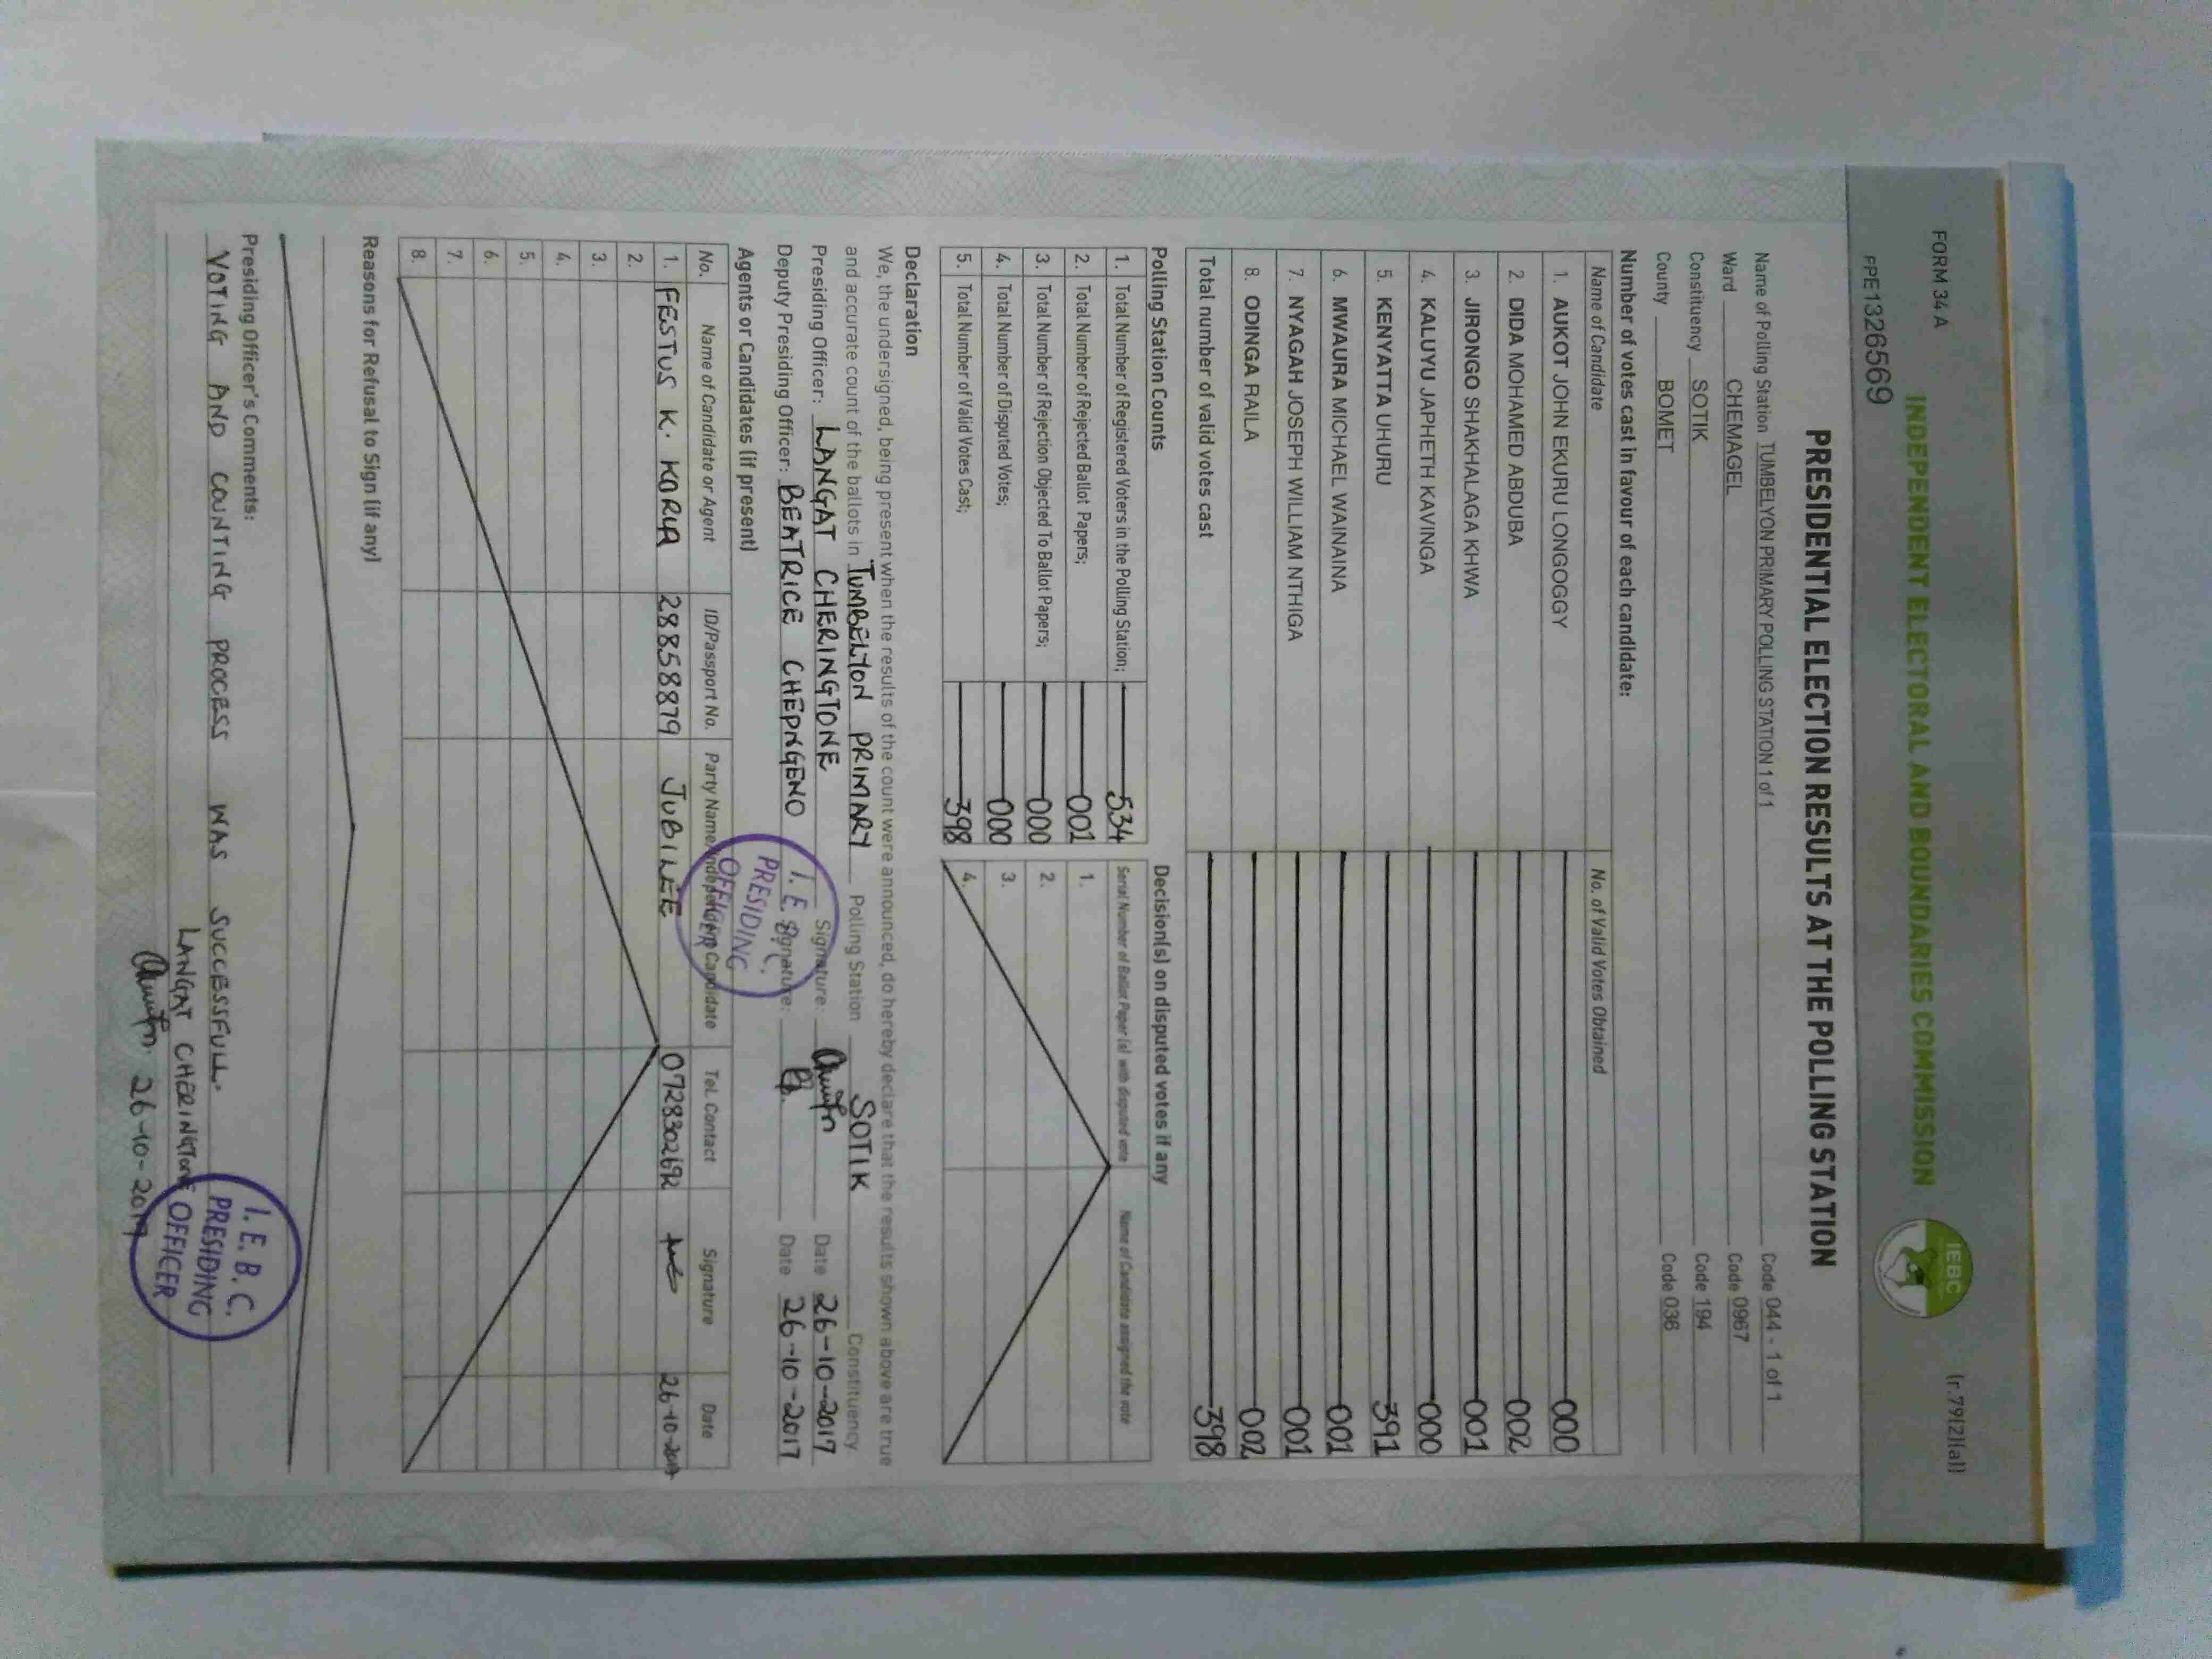 FORM 34 A
(r.79(2)(a))
INDEPENDENT ELECTORAL AND BOUNDARIES COMMISSION
IEBC
PPE1326569
PRESIDENTIAL ELECTION RESULTS AT THE POLLING STATION
Name of Polling Station TUMBELYON PRIMARY POLLING STATION 1 of 1 Code 044 - 1 of 1
Ward CHEMAGEL Code 0967
Constituency SOTIK Code 194
County BOMET Code 036
Number of votes cast in favour of each candidate:
Name of Candidate No. of Valid Votes Obtained
1. AUKOT JOHN EKURU LONGOGGY 000
2. DIDA MOHAMED ABDUBA 002
3. JIRONGO SHAKHALAGA KHWA 001
4. KALUYU JAPHETH KAVINGA 000
5. KENYATTA UHURU 391
6. MWAURA MICHAEL WAINAINA 001
7. NYAGAH JOSEPH WILLIAM NTHIGA 001
8. ODINGA RAILA 002
Total number of valid votes cast 398
Polling Station Counts
1. Total Number of Registered Voters in the Polling Station; 534
2. Total Number of Rejected Ballot Papers; 001
3. Total Number of Rejection Objected To Ballot Papers; 000
4. Total Number of Disputed Votes; 000
5. Total Number of Valid Votes Cast; 398
Decision(s) on disputed votes if any
Serial Number of Ballot Paper (s) with disputed vote Name of Candidate assigned the vote
1.
2.
3.
4.
Declaration
We, the undersigned, being present when the results of the count were announced, do hereby declare that the results shown above are true
and accurate count of the ballots in TUMBELYON PRIMARY Polling Station SOTIK Constituency.
Presiding Officer: LANGAT CHERINGTONE Signature: Date 26-10-2017
Deputy Presiding Officer: BEATRICE CHEPNGENO Signature: Date 26-10-2017
I.E.B.C.
PRESIDING
OFFICER
Agents or Candidates (if present)
No. Name of Candidate or Agent ID/Passport No. Party Name/Independent Candidate Tel. Contact Signature Date
1. FESTUS K. KORIR 28858879 JUBILEE 0728302692 26-10-2017
2.
3.
4.
5.
6.
7.
8.
Reasons for Refusal to Sign (if any)
Presiding Officer's Comments:
VOTING AND COUNTING PROCESS WAS SUCCESSFULL.
LANGAT CHERINGTONE
26-10-2017
I.E.B.C.
PRESIDING
OFFICER